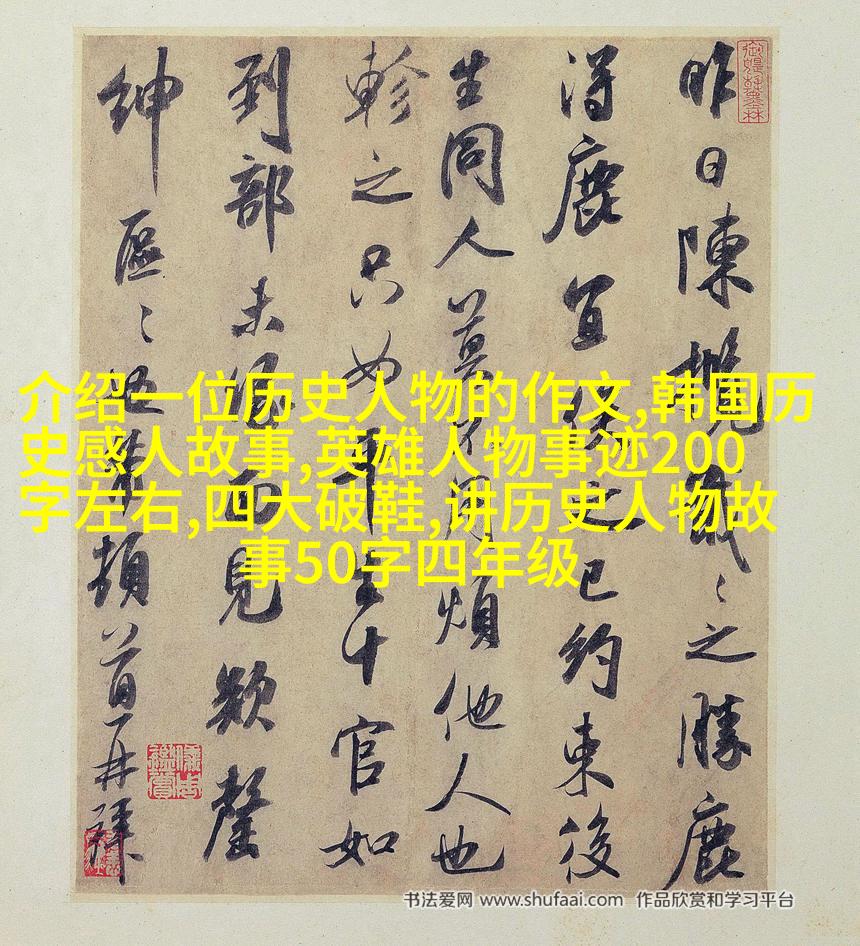 昨日陳之勝鹿
得鹿宜之已約束後
生同人莫不用煩他人也
軫之只如平生十官如
到部未緣面見欵罄
紳區頓首再拜
介绍一位历史人物的作文,韩国历
史感人故事,英雄人物事迹200
字左右,四大破鞋,讲历史人物故
事50字四年级
书法爱网 www.shufaai.com 作品欣赏和学习平台